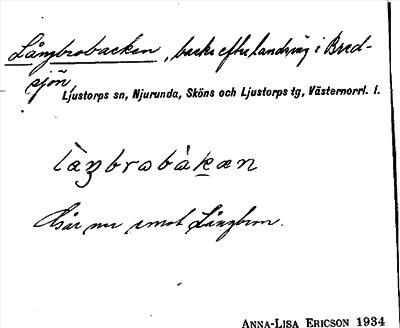 Långbrobacken, backe efter landsväg i Bred-
sjön,
Ljustorps sn, Njurunda, Sköns och Ljustorps tg, Västernorrl. l.
làŋbrobàkan
Går ner emot Långbron.
ANNA-LISA ERICSON 1934